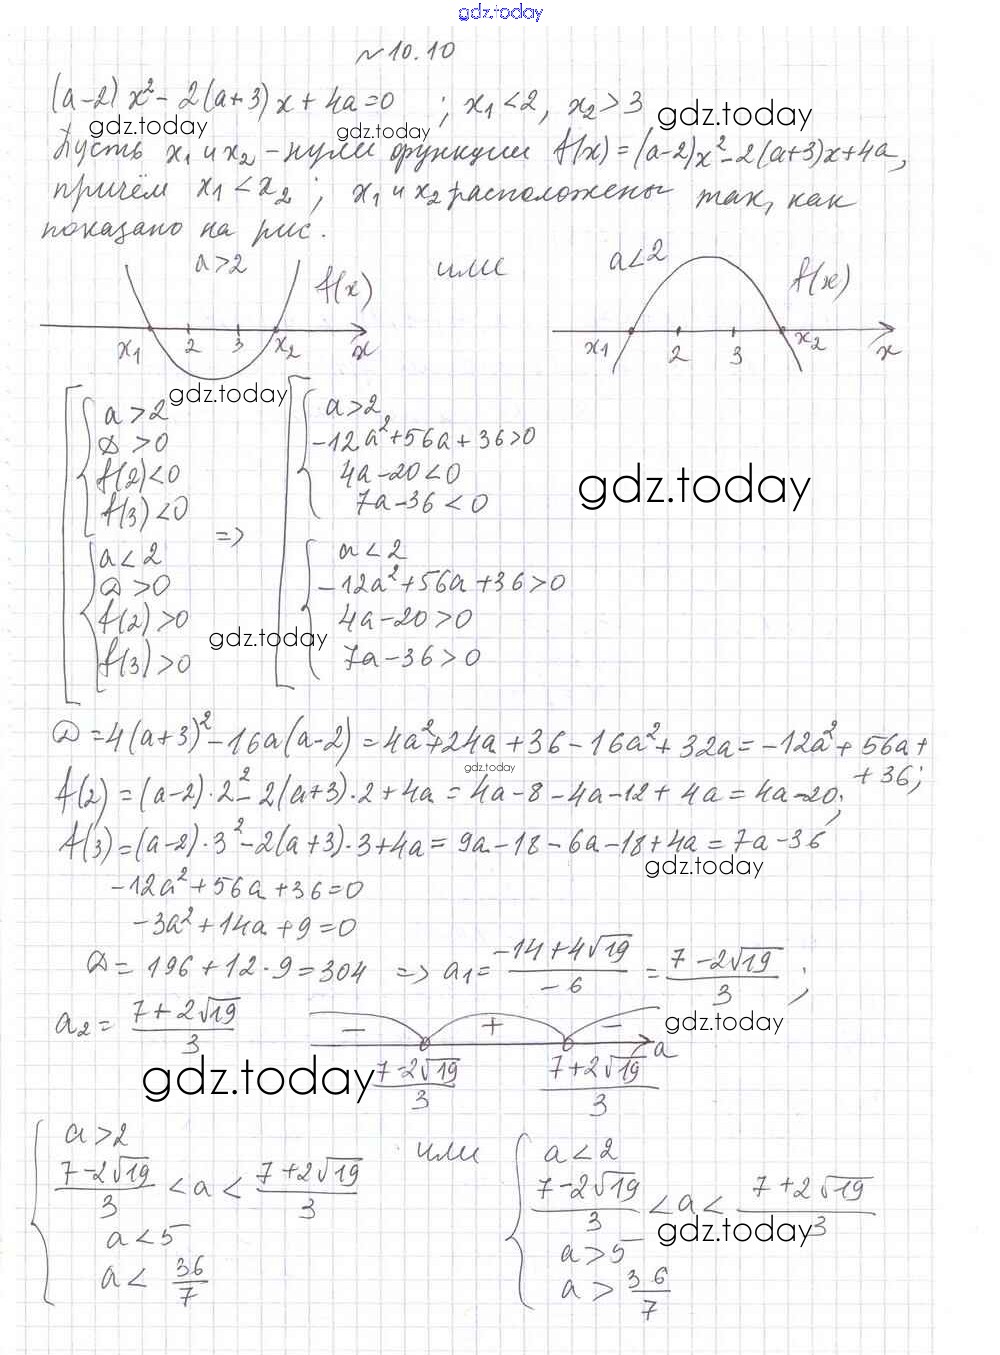 gdz.today
№10.10
(a-2)x²-2(a+3)x+4a=0 ; x₁<2, x₂>3
gdz.today gdz.today gdz.today
Пусть x₁ и x₂ - нули функции f(x)=(a-2)x²-2(a+3)x+4a,
причём x₁<x₂; x₁ и x₂ расположены так, как
показано на рис.
a>2 или a<2
f(x) f(x)
x₁ 2 3 x₂ x x₁ 2 3 x₂ x
gdz.today
a>2 a>2
D>0 -12a²+56a+36>0
f(2)<0 4a-20<0
f(3)<0 7a-36<0
gdz.today
=>
a<2 a<2
D>0 -12a²+56a+36>0
f(2)>0 4a-20>0
gdz.today
f(3)>0 7a-36>0
D=4(a+3)²-16a(a-2)=4a²+24a+36-16a²+32a=-12a²+56a+
+36;
gdz.today
f(2)=(a-2)·2²-2(a+3)·2+4a=4a-8-4a-12+4a=4a-20;
f(3)=(a-2)·3²-2(a+3)·3+4a=9a-18-6a-18+4a=7a-36
gdz.today
-12a²+56a+36=0
-3a²+14a+9=0
D=196+12·9=304 => a₁=(-14+4√19)/(-6)=(7-2√19)/3;
a₂=(7+2√19)/3
- + -
gdz.today
a
gdz.today
(7-2√19)/3 (7+2√19)/3
a>2 или a<2
(7-2√19)/3<a<(7+2√19)/3 (7-2√19)/3<a<(7+2√19)/3
gdz.today
a<5 a>5
a<36/7 a>36/7